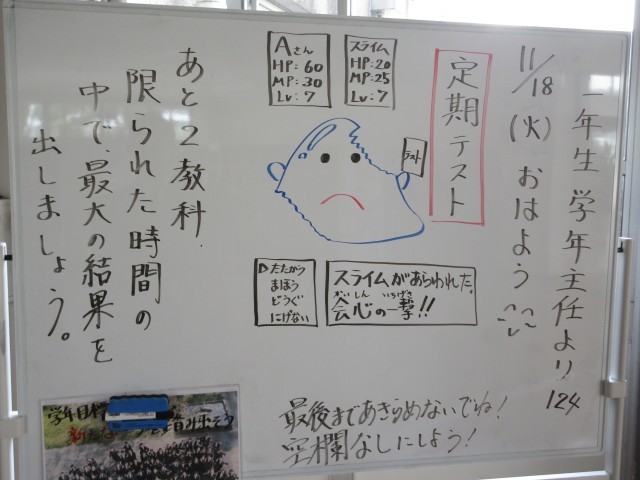 一年生 学年主任より 124
11/18 (火) おはよう
定期テスト
Aさん
HP:60
MP:30
Lv:7
スライム
HP:20
MP:25
Lv:7
テスト
▷たたかう
まほう
どうぐ
にげない
スライムがあらわれた。
会心の一撃!!
かいしん いちげき
あと2教科.
限られた時間の
中で、最大の結果を
出しましょう。
最後まであきらめないでね!
空欄なしにしよう!
学年目標